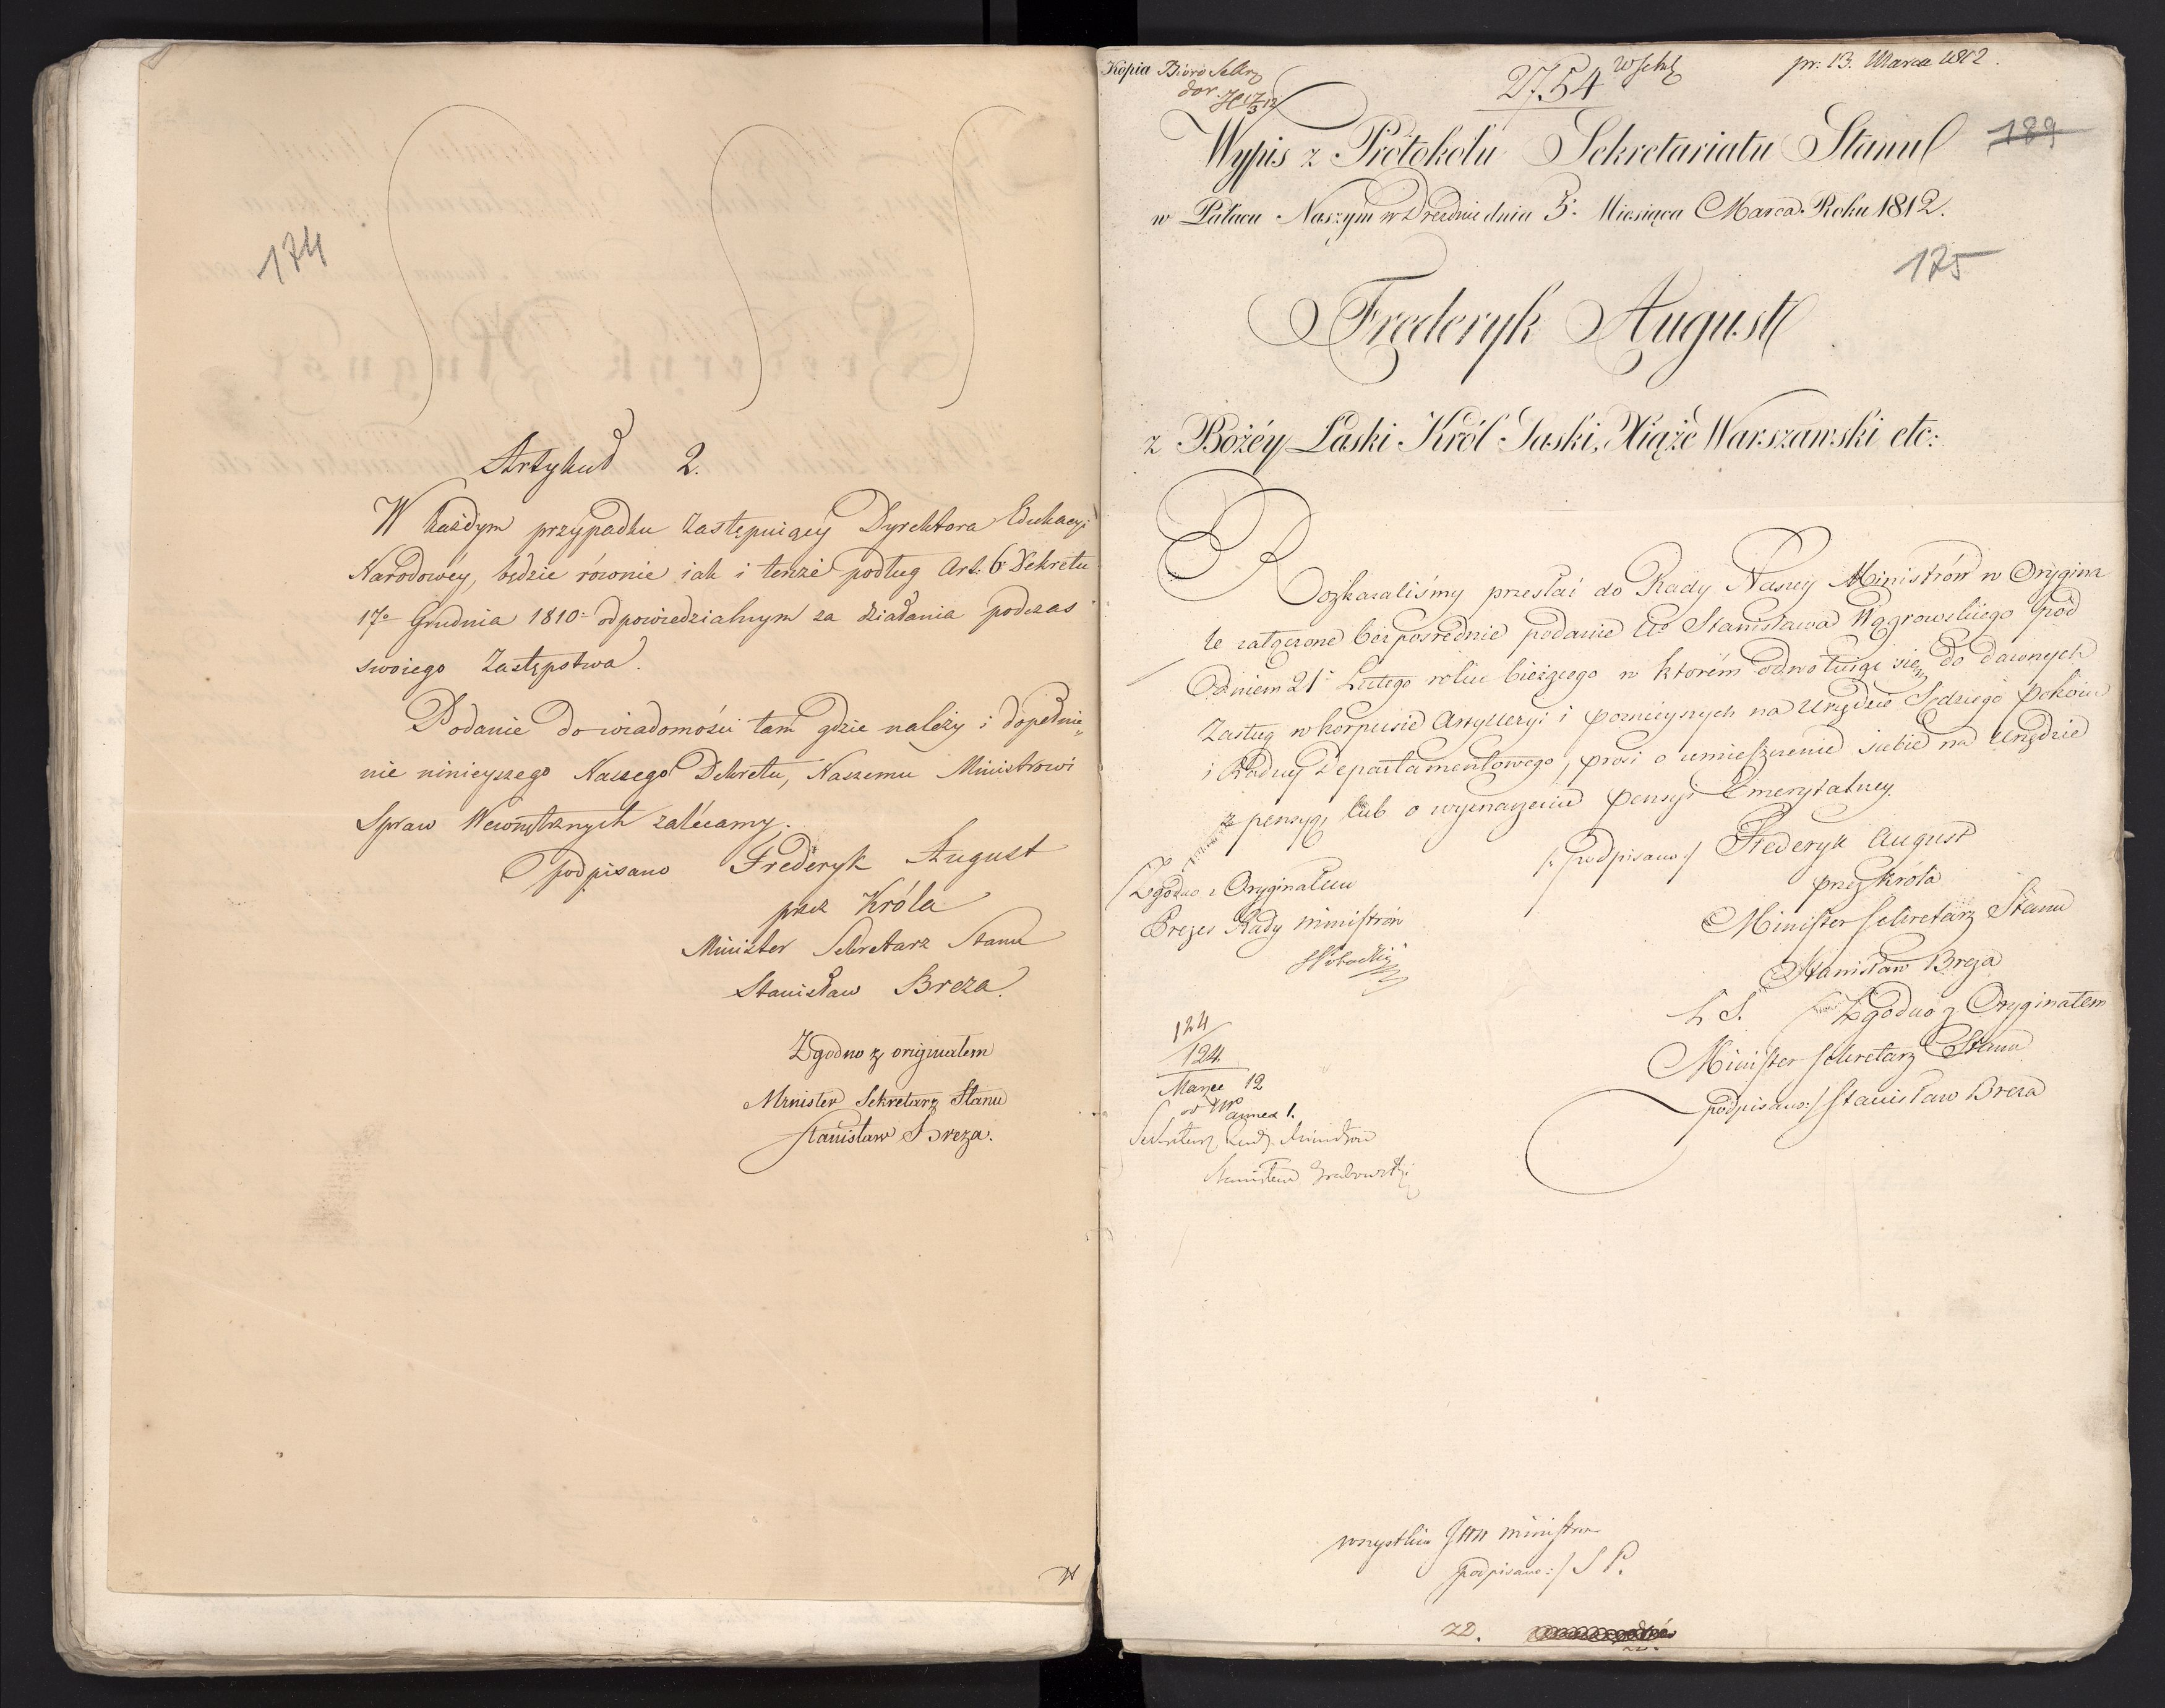 174
Artykuł 2.
W każdym przypadku Zastępuiący Dyrektora Edukacyi
Narodowey, będzie równie iak i tenże podług Art: 6. Dekretu
17º Grudnia 1810= odpowiedzialnym za działania podczas
swoiego Zastępstwa.
Podanie do wiadomości tam gdzie należy i dopełnie„
nie ninieyszego Naszego Dekretu, Naszemu Ministrowi
Spraw Wewnętrznych zalecamy.
podpisano Frederyk August
przez Króla
Minister Sekretarz Stanu
Stanisław Breza.
Zgodno z originałem
Minister Sekretarz Stanu
Stanisław Breza.
Kopia Bióro Sekr
2754
pr. 13. Marca 1812.
189
Wypis z Protokołu Sekretariatu Stanu
w Pałacu Naszym w Dreźnie dnia 5. Miesiąca Marca Roku 1812.
175
Frederyk August
z Bożéy Łaski Król Saski, Xiążę Warszawski etc:
Rozkazaliśmy przesłać do Rady Naszey Ministrów w Orygina
le załączone bezpośrednie podanie Ur Stanisława Wągrowskiego pod
Dniem 21. Lutego roku bieżącego w którém odwołuiąc się do dawnych
Zasług w korpusie Artylleryi i poznieyszych na Urzędzie Sędziego pokoiu
i Radcy Departamentowego, prosi o umieszczenie siebie na Urzędzie
z pensyą lub o wyznaczenie pensyi Emerytalney.
/: podpisano :/ Frederyk August
przez Króla
Minister Sekretarz Stanu
Stanisław Breza
L. S. Zgodno z Oryginałem
Minister Sekretarz Stanu
podpisano :/ Stanisław Breza
Zgodno z Oryginałem
Prezes Rady Ministrów
124
124
Marca 12
annex 1.
Sekretarz Rady Ministrów
Stanisław Grabowski
wszystkim JWW ministrom
podpisano :/ S P.